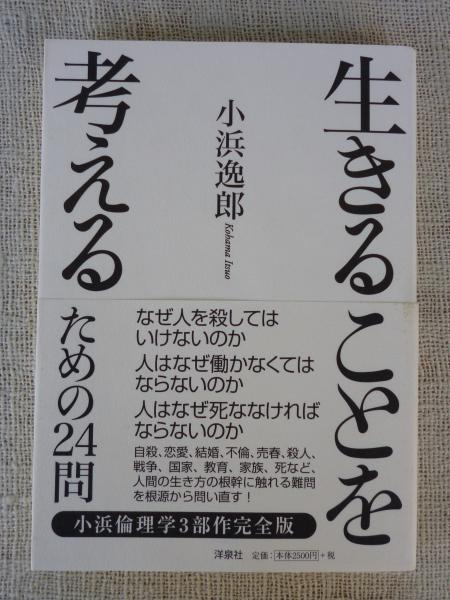 生きることを
考える
ための24問
小浜逸郎
Kohama Itsuo
なぜ人を殺しては
いけないのか
人はなぜ働かなくては
ならないのか
人はなぜ死ななければ
ならないのか
自殺、恋愛、結婚、不倫、売春、殺人、
戦争、国家、教育、家族、死など、
人間の生き方の根幹に触れる難問
を根源から問い直す!
小浜倫理学3部作完全版
洋泉社 定価:本体2500円+税